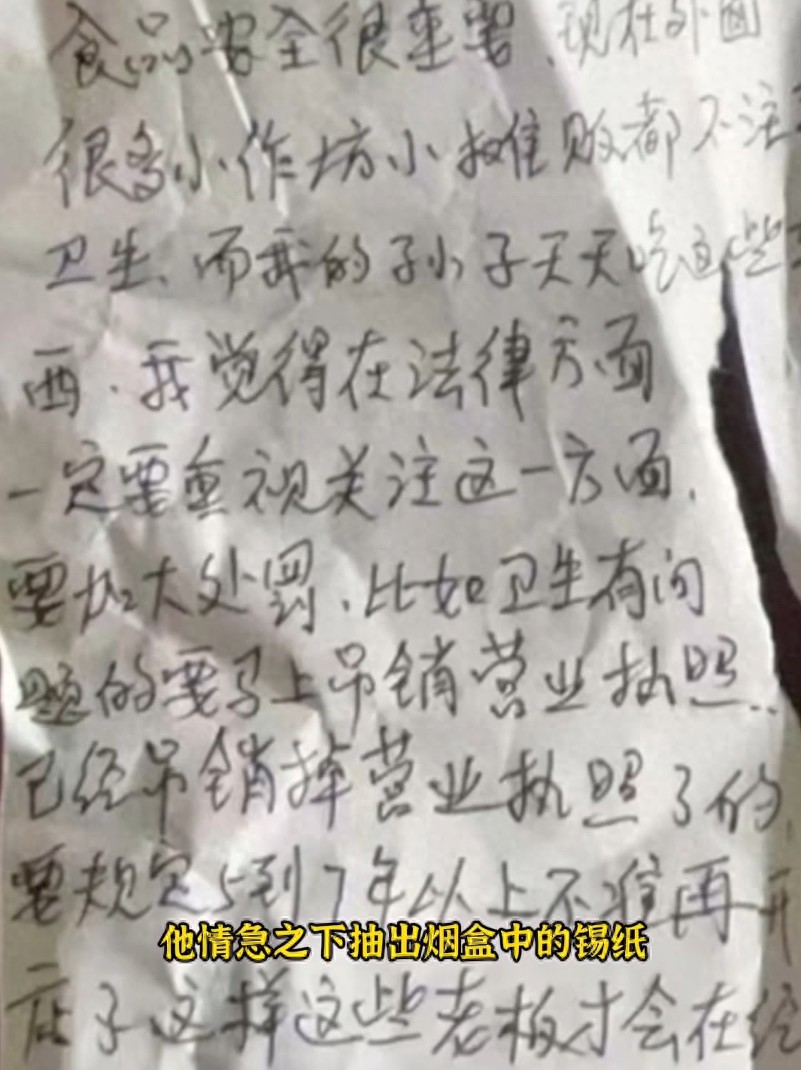 食品安全很重要、现在外面
很多小作坊小摊贩都不注
卫生、而我的孙子天天吃这些
西、我觉得在法律方面
一定要重视关注这一方面、
要加大处罚、比如卫生有问
题的要马上吊销营业执照..
已经吊销掉营业执照了的、
要规定5到7年以上不准再开
他情急之下抽出烟盒中的锡纸
店子这样这些老板才会在经